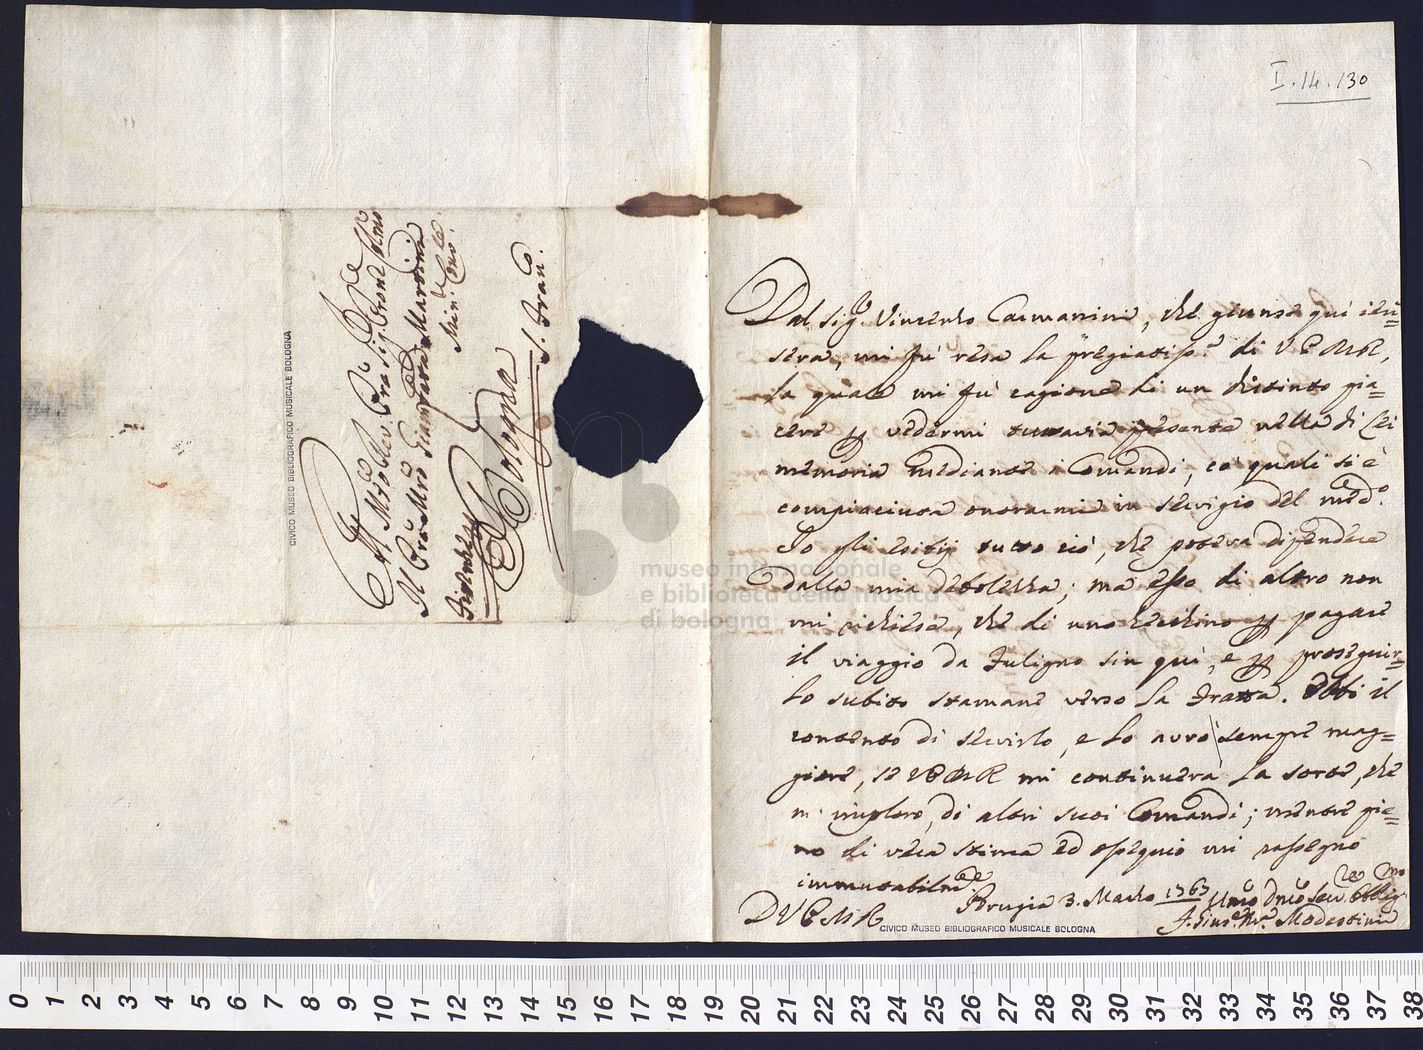 I.14.130
Dal Sig.r Vincenzo Caimanini, che giunse quì ieri
sera, mi fù resa la pregiatiss.a di V P M R,
la quale mi fù cagione di un distinto pia=
cere p vedermi tuttavia presente nella di Lei
memoria mediante i Comandi, co' quali si è
compiaciuta onorarmi in servigio del med.o
Io gli esibij tutto ciò, che poteva dipendere
dalla mia debolezza; ma esso di altro non
mi richiese, che di uno zecchino p pagare
il viaggio da Fuligno sin quì, e p proseguir=
lo subito stamane verso la Fratta. Ebbi il
contento di servirlo, e lo avrò sempre mag=
giore, se V P M R mi continuerà la sorte, che
m' imploro, di altri suoi Comandi; mentre pie=
no di vera stima ed ossequio mi rassegno
immutabilm.e
D V P M R
Perugia 3. Marzo 1763
Um.o Dm.o Serv.re Obblig.mo
F. Gius.e M.a Modestini
Al M.to Rev. P.re
Il P.re M.ro Giambatta Martini
Min: Con.
Bologna
S. Fran.co
CIVICO MUSEO BIBLIOGRAFICO MUSICALE BOLOGNA
CIVICO MUSEO BIBLIOGRAFICO MUSICALE BOLOGNA
museo internazionale
e biblioteca della musica
di bologna
0 1 2 3 4 5 6 7 8 9 10 11 12 13 14 15 16 17 18 19 20 21 22 23 24 25 26 27 28 29 30 31 32 33 34 35 36 37 38